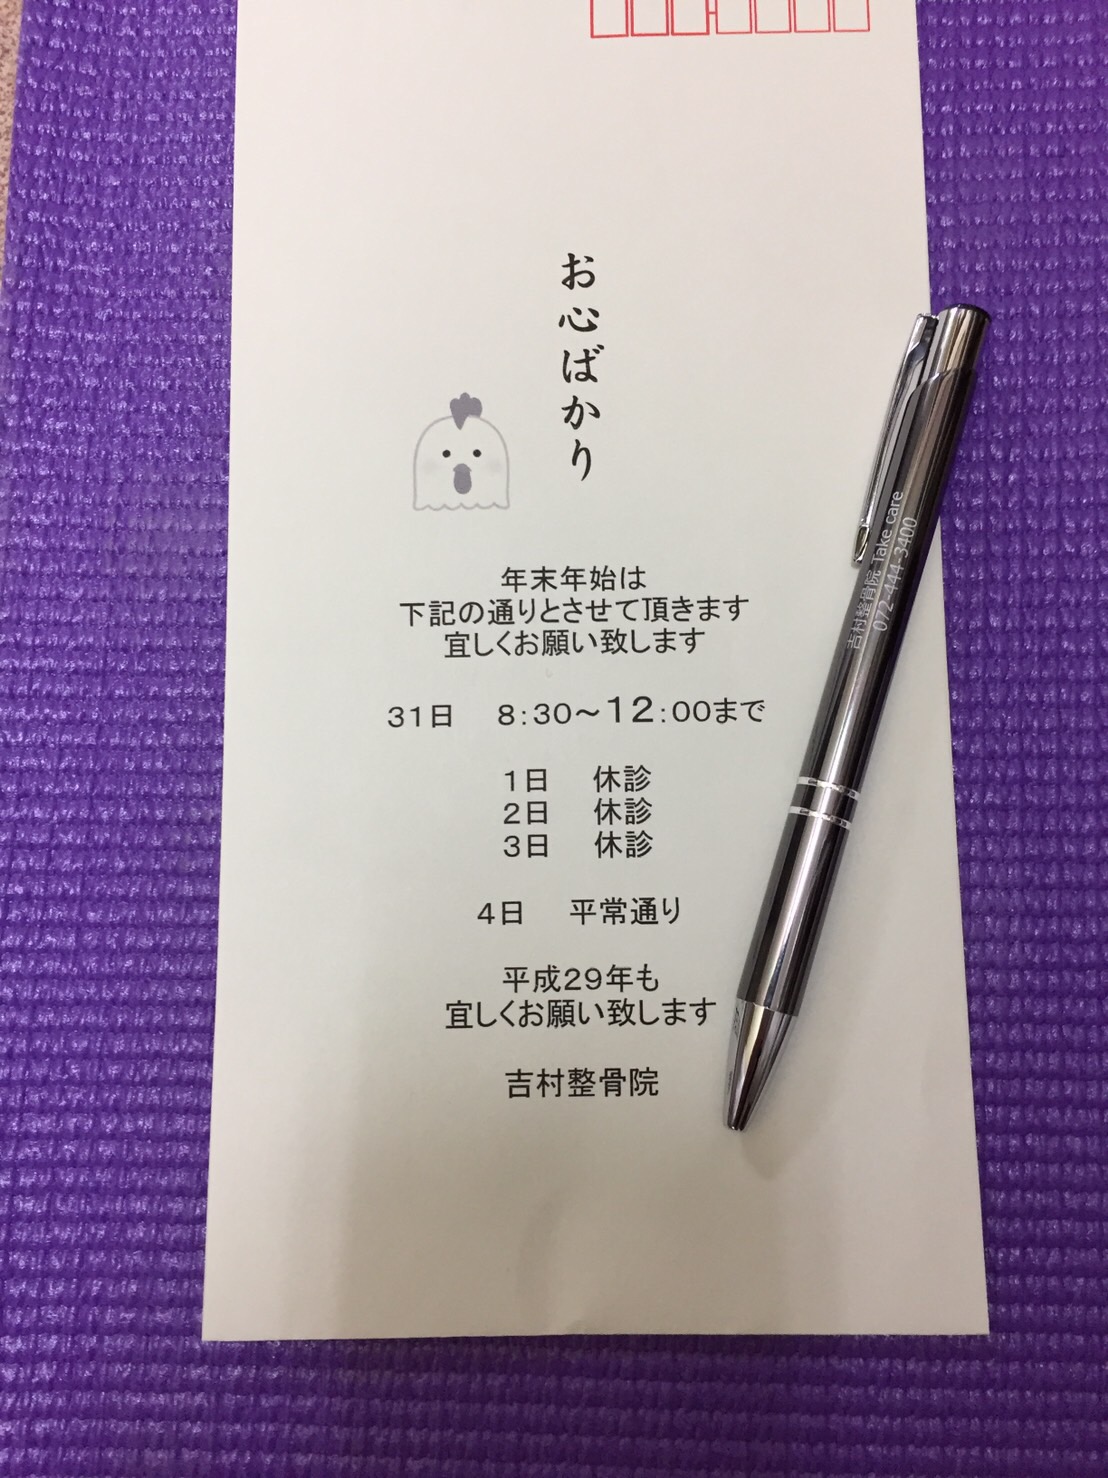 お心ばかり
年末年始は
下記の通りとさせて頂きます
宜しくお願い致します
31日 8:30～12:00まで
1日 休診
2日 休診
3日 休診
4日 平常通り
平成29年も
宜しくお願い致します
吉村整骨院
吉村整骨院 Take care
072-444-3400